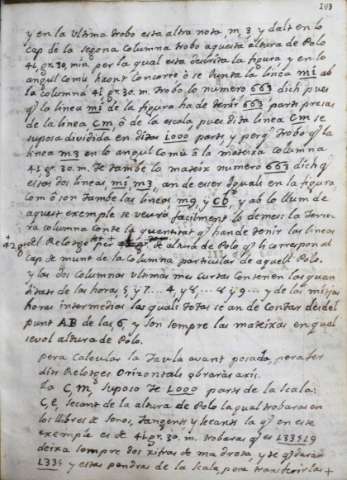 103
y en la ultima trobo esta altra nota, m, 3 y dalt en lo
cap de la segona Columna trobo aquesta altura de Polo
41 gr. 30, min, per la qual esta descrita la figura, y en lo
angul comu hont Concorre ô se junta la linea mi ab
la columna 41 gr. 30. m. trobo lo numero 663 dich pues
qe la linea mi de la figura ha de tenir 663 parts preses
de la linea C, m, ô de la escala, pues dita linea C, m se
suposa dividida en ditas 1000 parts, y perqe trobo qe la
linea m3 en lo angul Comu â la mateixa columna
41 gr. 30. m. Te també lo mateix numero 663 dich qe
estas dos lineas, mi, m3, an de eser iguals en la figura
com ô son també las lineas, m9, y CD, y ab lo llum de
aquest exemple se veurà facilment lo demes la Terce-
ra columna conte la quantitat qe han de tenir las lineas
del Relotge per altura de Polo qe li correspon al
cap de munt de la Columna particular de aquell Polo.
y las dos Columnas ultimas mes curtas contenen las quan
titats de las horas, 5, y 7... 4, y 8, ... 8 y 9... y de las mitjas
horas intermedias las quals totas se an de Contar desdel
punt AB de las 6, y son sempre las mateixas en qual
sevol altura de Polo.
pera Calcular la Taula avant posada, pera fer
dits Relotges Orizontals obraràs axi.
La C, m, suposo Te 1000 parts de la Scala:
C, e, Secant de la altura de Polo la qual trobaras en
los llibres de sinos, Tangents y secants la qe en este
exemple es de 41 gr. 30. m. trobaras qe es 133519
deixa sempre dos xifras de ma dreta, y te quedaràn
1335 y estas pendras de la scala, pera transferirlas +